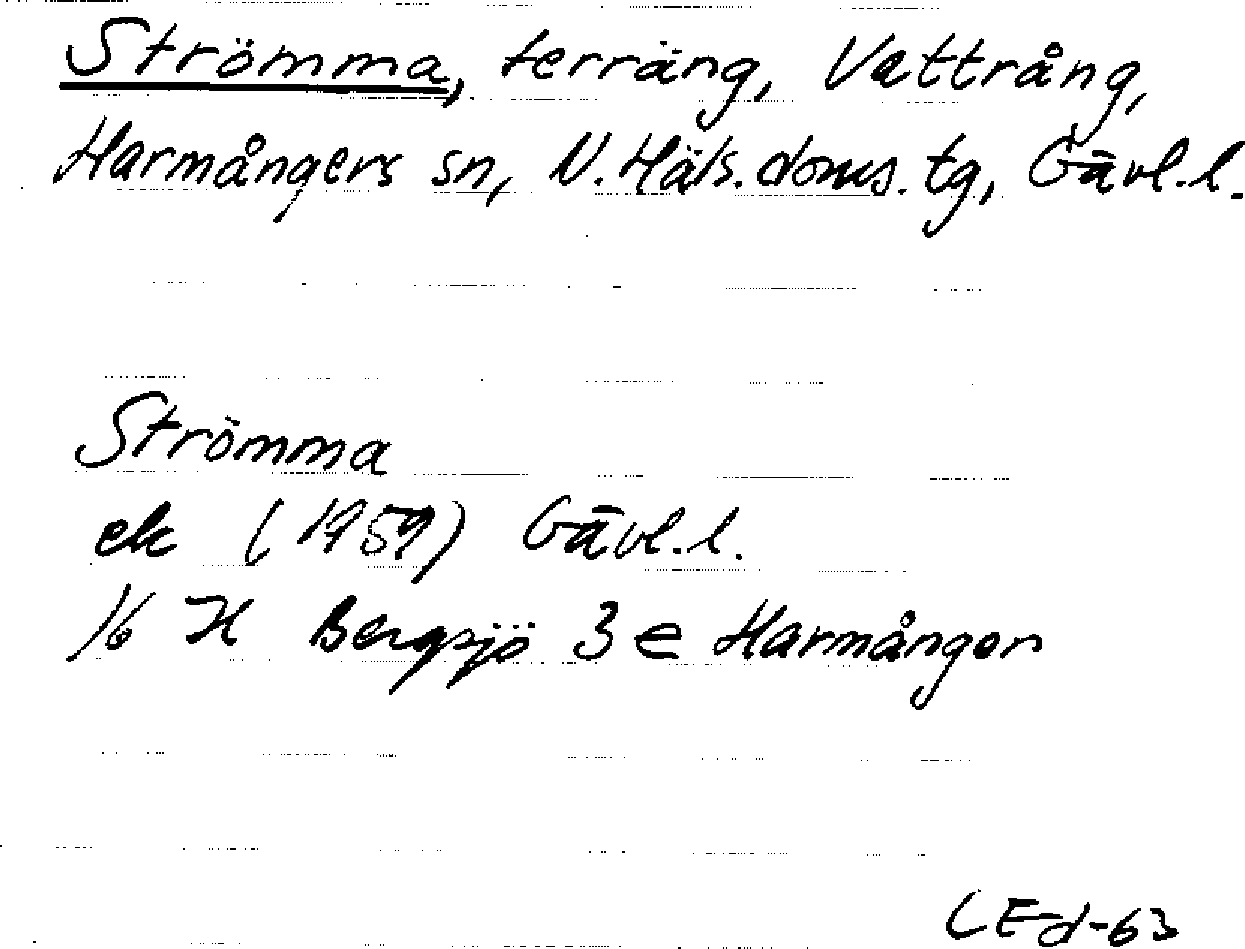 Strömma, terräng, Vattrång,
Harmångers sn, N. Häls. doms. tg, Gävl. l.
Strömma
ek (1959) Gävl. l.
16 H Bergsjö 3 e Harmånger
LE-d-63